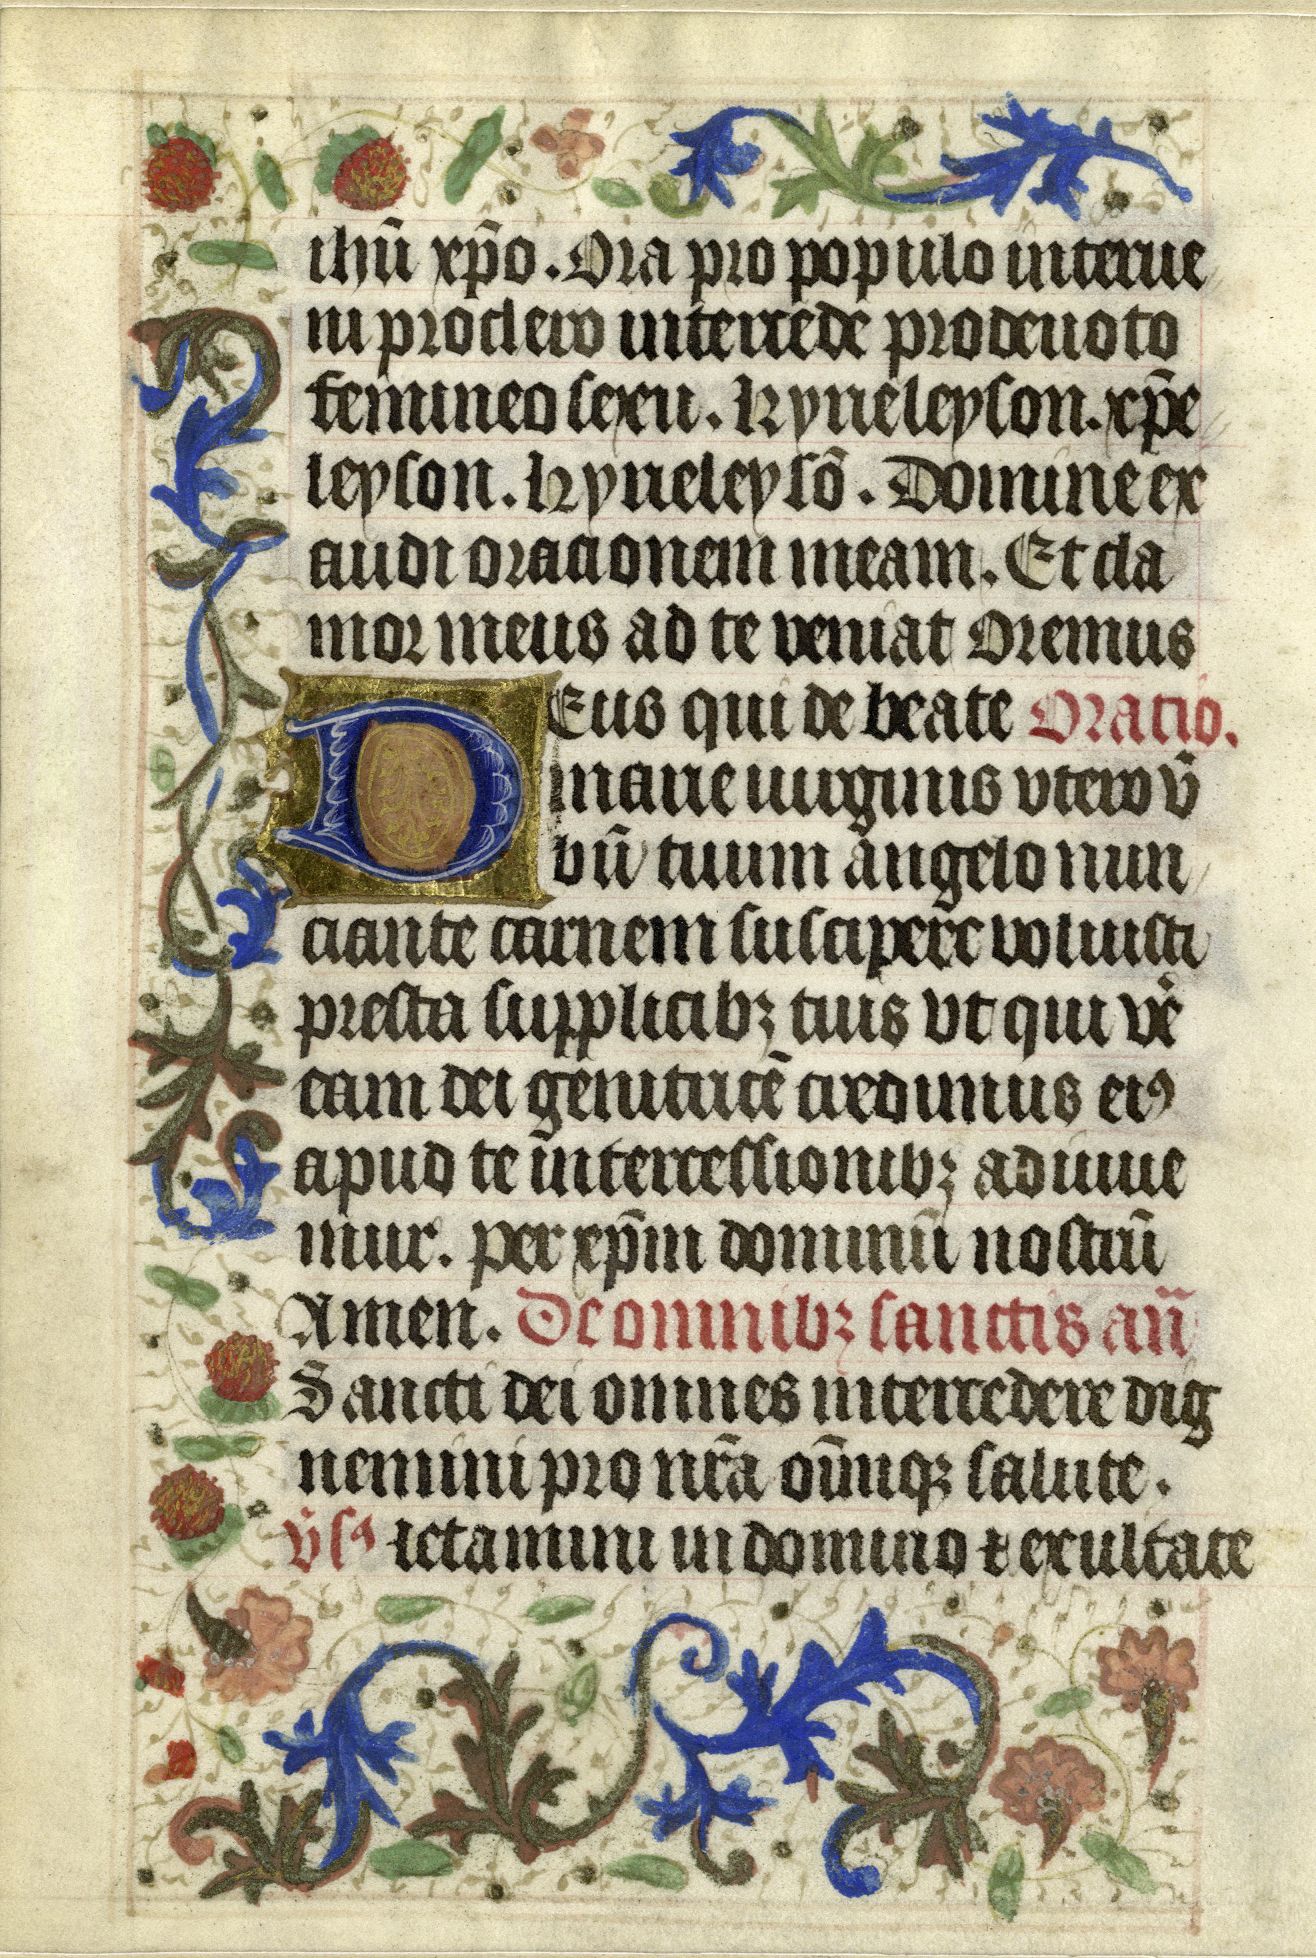 ihū xp̄o. Ora pro populo interue
ni pro clero intercede pro deuoto
femineo sexu. Kyrieleyson. xp̄e
leyson. Kyrieleysō. Domine ex
audi oracionem meam. Et cla
mor meus ad te veniat Oremus
Deus qui de beate Oracio.
marie uirginis vtero v̄
bū tuum angelo nun
ciante carnem suscipere voluisti
presta supplicibꝫ tuis vt qui ve᷑
eam dei genitricē credimus eiꝰ
apud te intercessionibꝫ adiuue
mur. per xp̄m dominū nostrū
Amen. De omnibꝫ sanctis an̄
Sancti dei omnes intercedere dig
nemini pro nr̄a om̄iuqꝫ salute.
v̄sꝰ letamini in domino ⁊ exultate